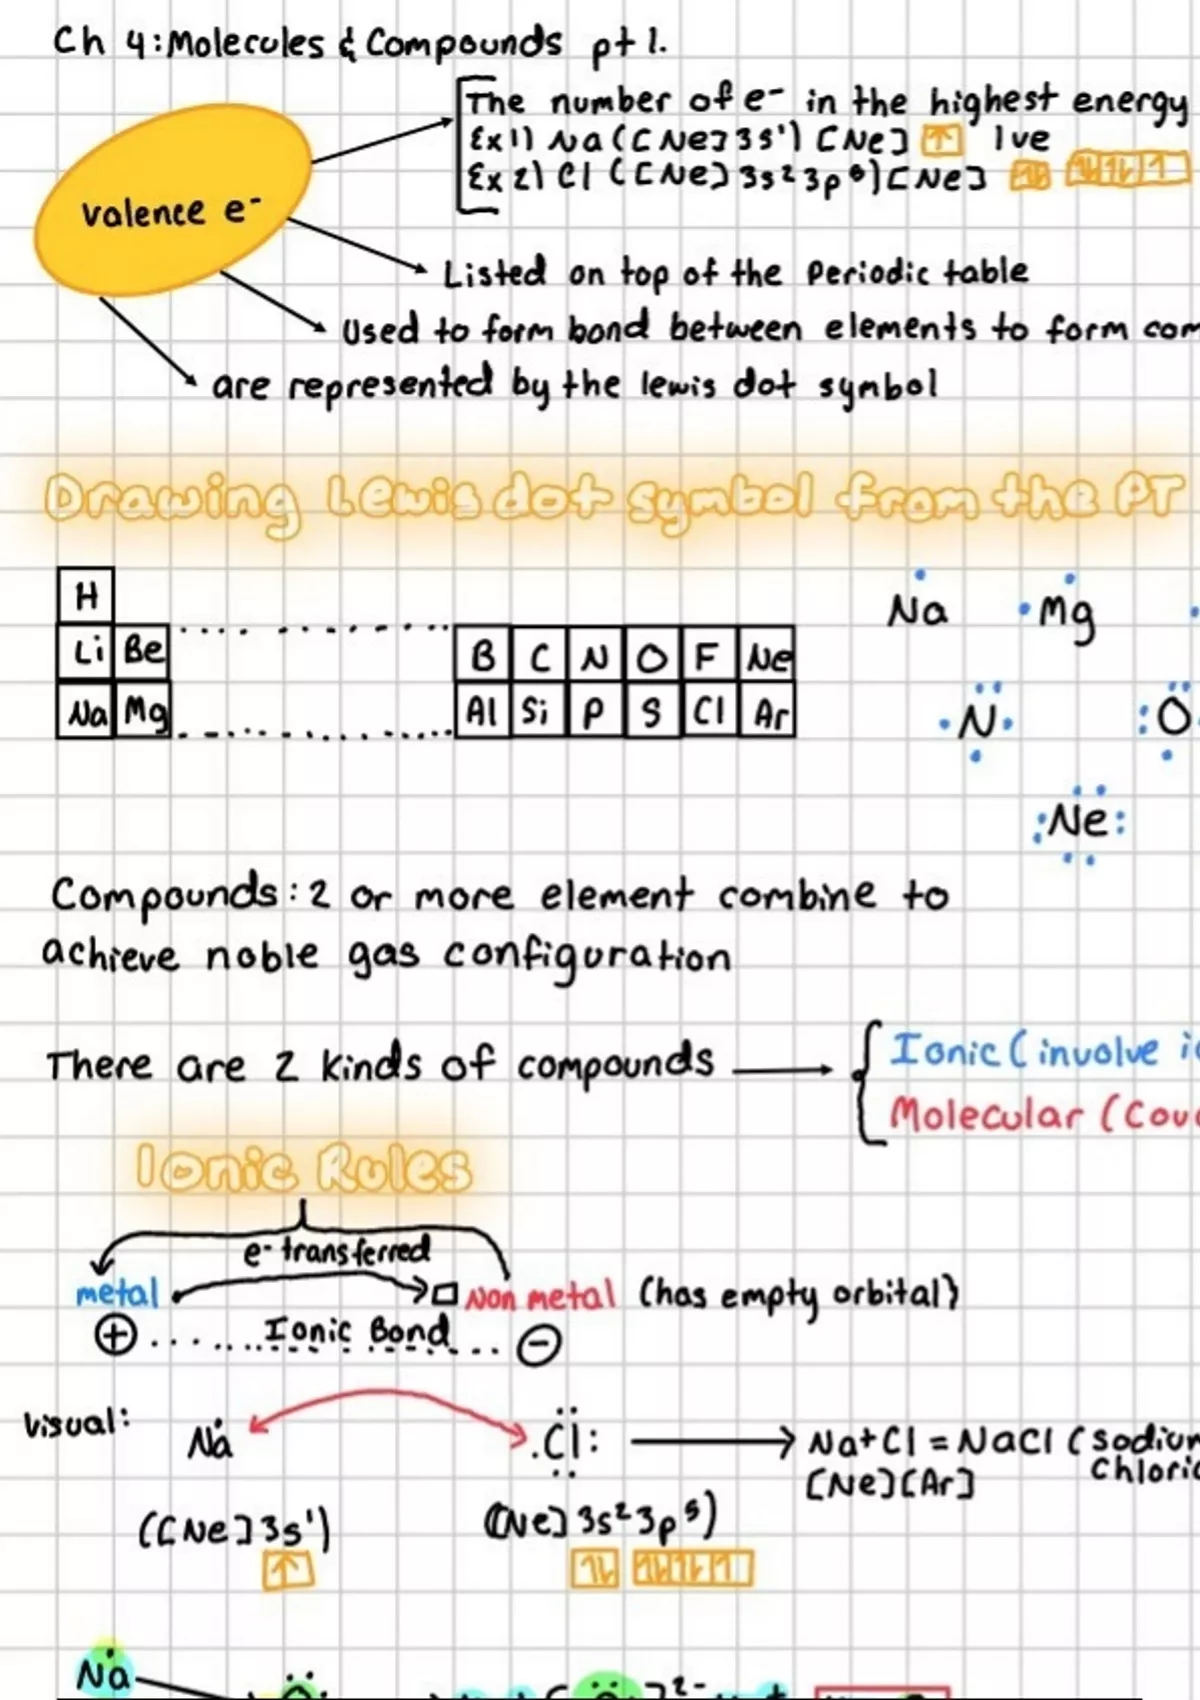 Ch 4: Molecules & Compounds pt 1.
valence e-
The number of e- in the highest energy
Ex 1) Na ([Ne] 3s¹) [Ne] ↑ 1ve
Ex 2) Cl ([Ne] 3s² 3p⁵) [Ne] ↑↓ ↑↓ ↑↓ ↑
Listed on top of the periodic table
Used to form bond between elements to form com
are represented by the lewis dot symbol
Drawing Lewis dot symbol from the PT
H
Li Be B C N O F Ne
Na Mg Al Si P S Cl Ar
Na Mg
N O
Ne
Compounds: 2 or more element combine to
achieve noble gas configuration
There are 2 kinds of compounds
Ionic (involve io
Molecular (Cova
Ionic Rules
e- transferred
metal Non metal (has empty orbital)
+ Ionic Bond −
Visual: Na Cl Na + Cl = NaCl (sodium
chlorid
[Ne] [Ar]
([Ne] 3s¹) ([Ne] 3s² 3p⁵)
↑ ↑↓ ↑↓ ↑↓ ↑
Na
2-